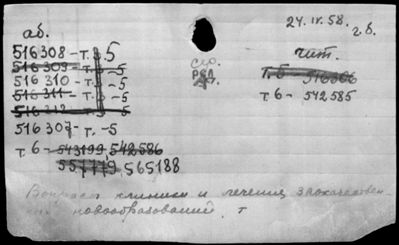 24.IV.58.
г.б.
аб.
516308 - т. 5
516309 - т. -5
516310 - т. -5
516311 - т. -5
516312 - т. -5
516307 - т. -5
т. 6 - 543199, 542586
557779, 565188
чит.
т. 5 516306
т. 6 - 542585
Вопросы клиники и лечения злокачествен
ных новообразований. т